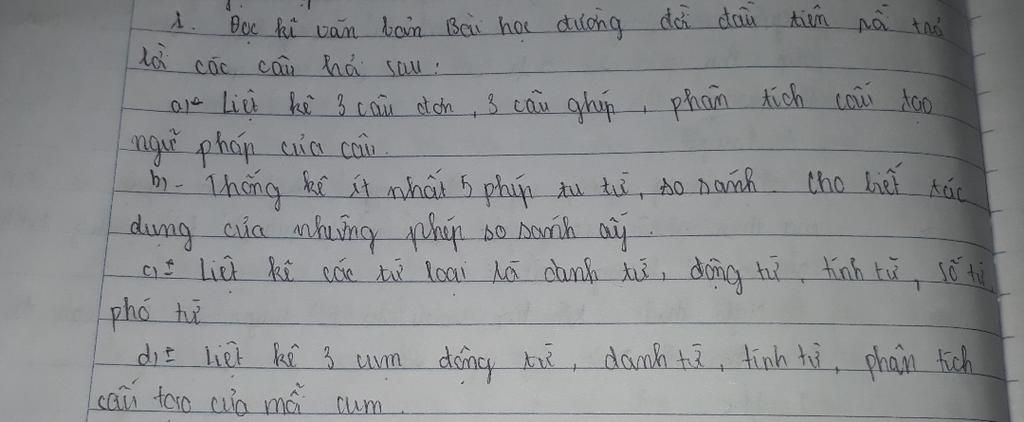 1. Đọc kĩ văn bản Bài học đường đời đầu tiên và trả
lời các câu hỏi sau:
a, - Liệt kê 3 câu đơn, 3 câu ghép, phân tích cấu tạo
ngữ pháp của câu.
b, - Thống kê ít nhất 5 phép tu từ, so sánh. Cho biết tác
dụng của những phép so sánh ấy.
c, - Liệt kê các từ loại là danh từ, động từ, tính từ, số từ,
phó từ
d, - Liệt kê 3 cụm động từ, danh từ, tính từ, phân tích
cấu tạo của mỗi cụm.